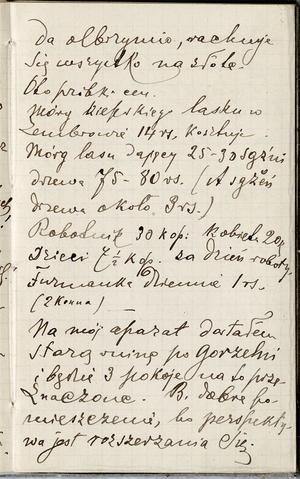 da olbrzymio, rachuje
się wszystko na złoto.
Oto próbka cen.
Mórg kiepskiego lasku w
14 rs, kosztuje.
Mórg lasu dający 25-30 sążni
drzewa 75-80 rs. (A sążeń
drzewa około 3 rs.)
Robotnik 30 kop: kobieta 20,
Dzieci 7 1/2 kop. za dzień roboty,
Furmanka dziennie 1 rs.
(2 konna)
Na mój aparat dostałem
starą ruinę po Gorzelni
i będzie 3 pokoje na to prze-
znaczone. B. dobre po-
mieszczenie, bo perspekty-
wa jest rozszerzania się.